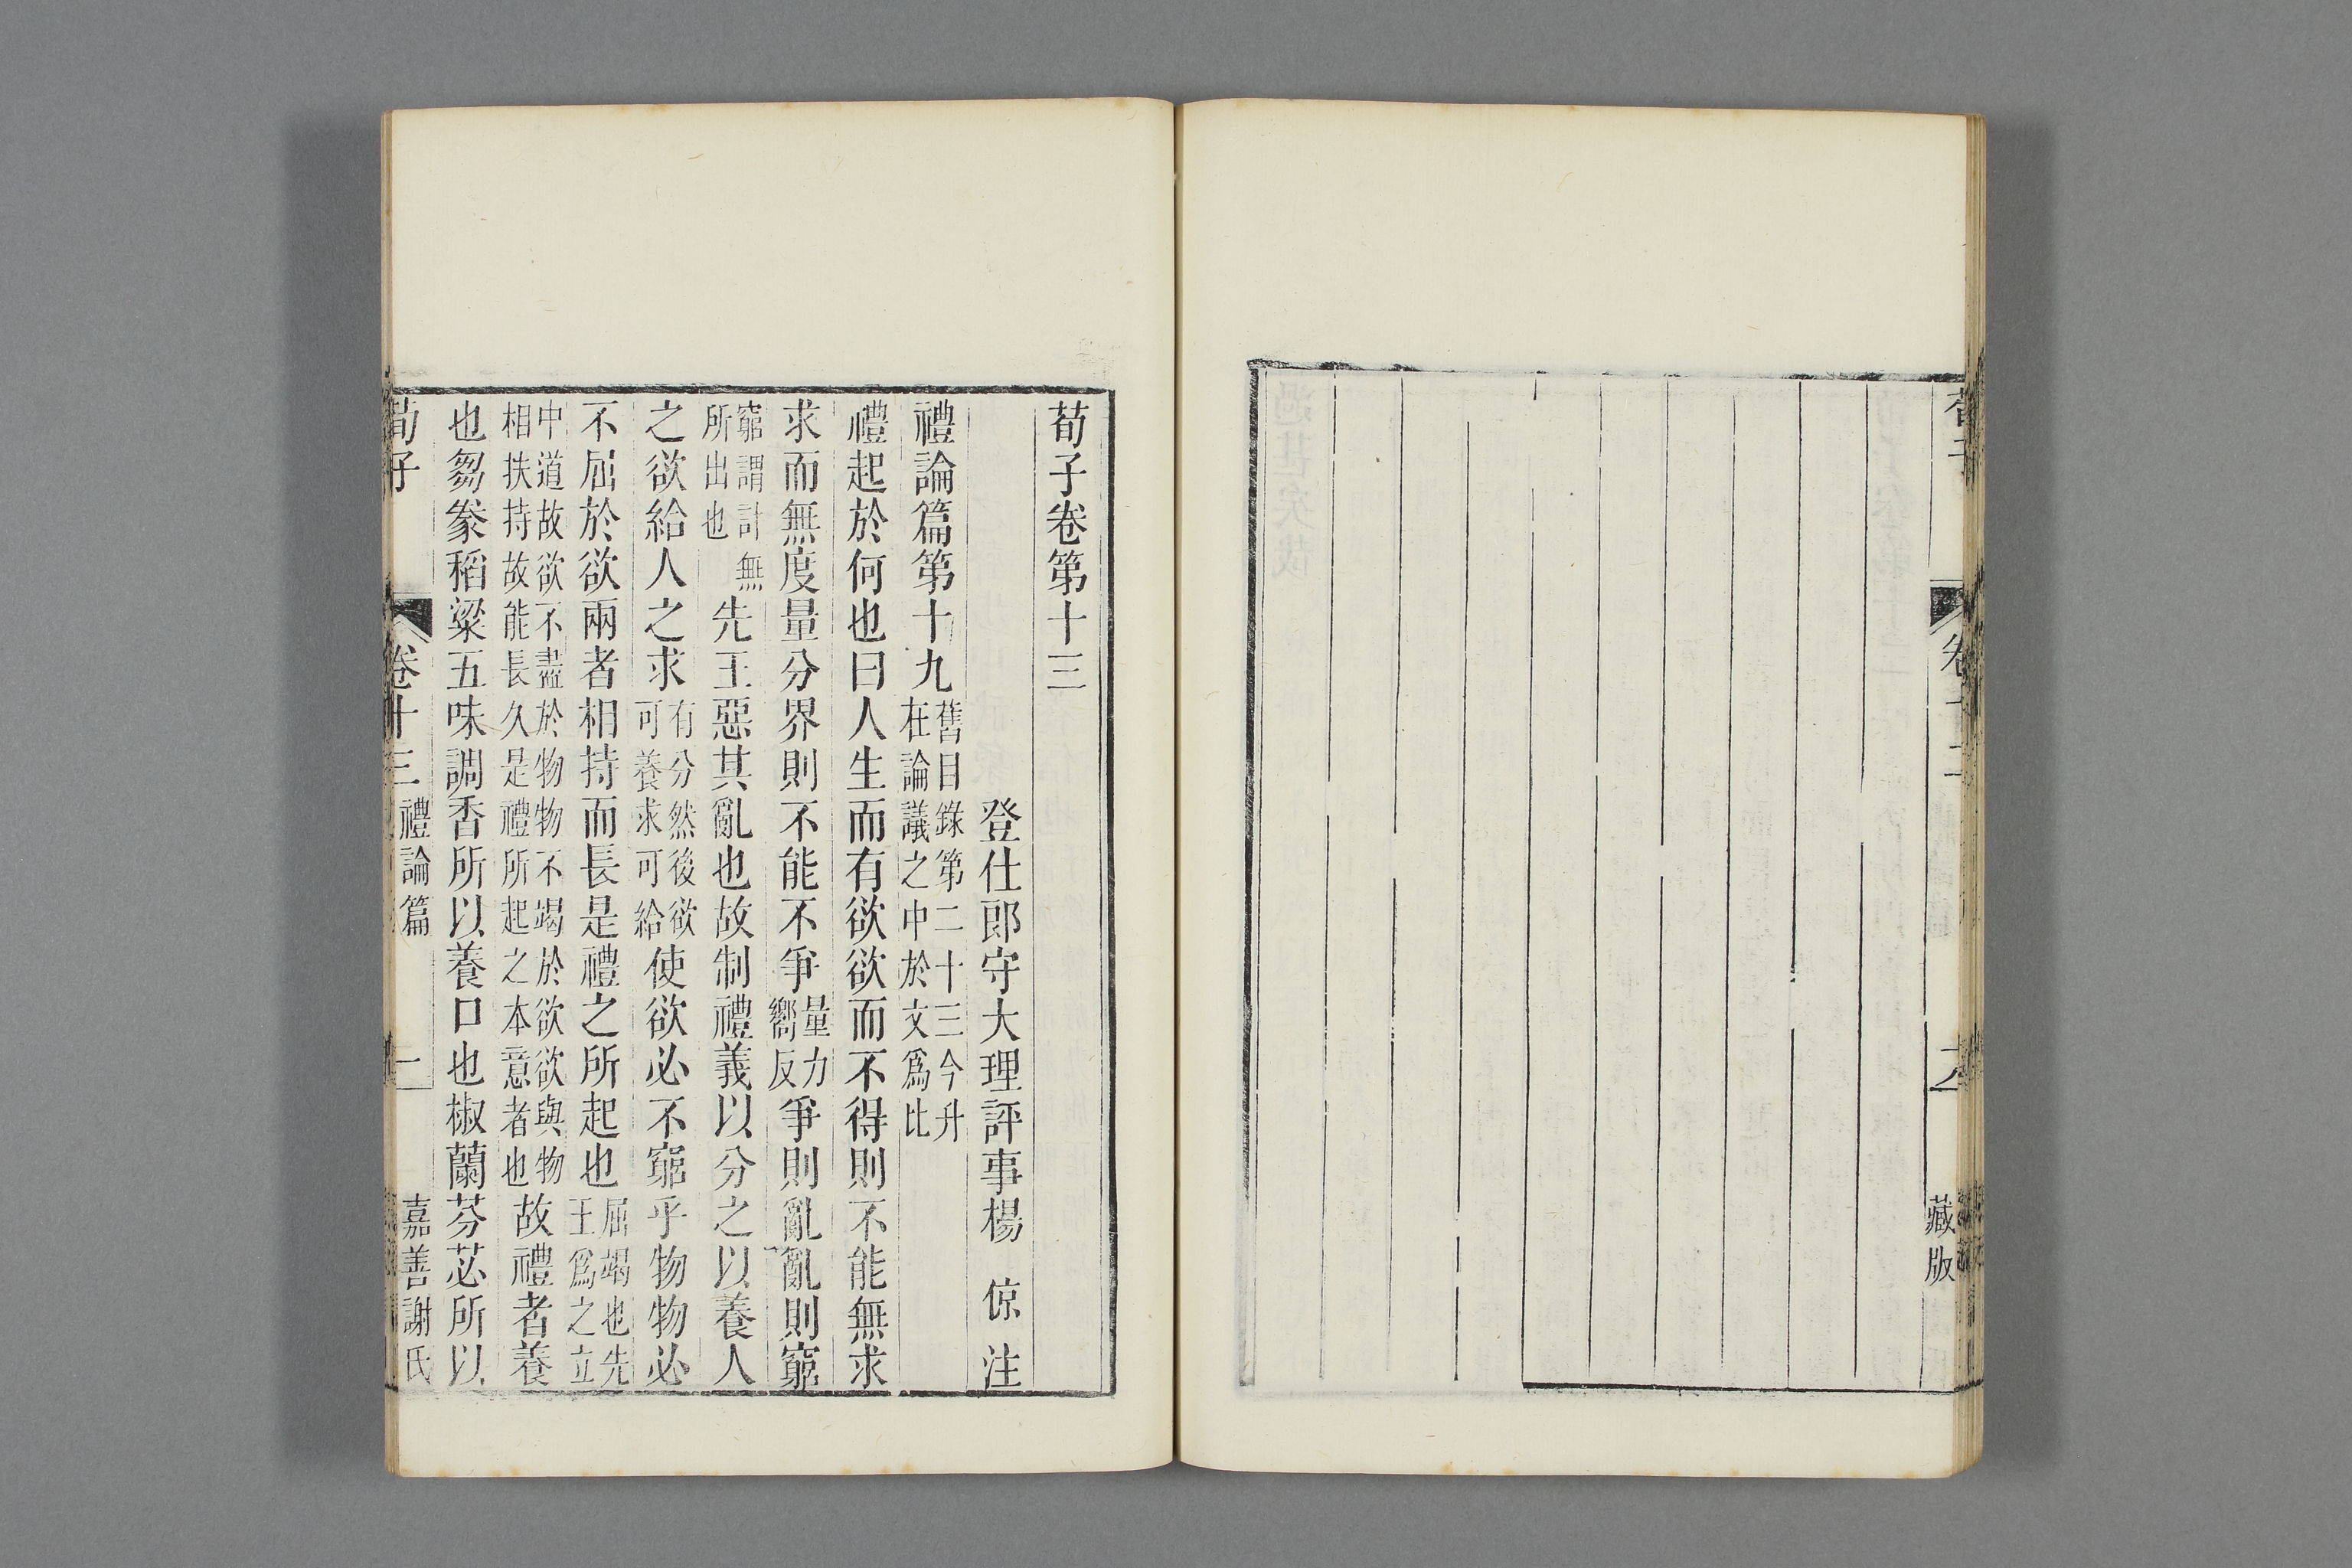 藏版
荀子卷第十三
登仕郎守大理評事楊 倞 注
禮論篇第十九舊目錄第二十三今升在論議之中於文爲比
禮起於何也曰人生而有欲欲而不得則不能無求
求而無度量分界則不能不爭量力嚮反爭則亂亂則窮
窮謂計無所出也先王惡其亂也故制禮義以分之以養人
之欲給人之求有分然後欲可養求可給使欲必不窮乎物物必
不屈於欲兩者相持而長是禮之所起也屈竭也先王爲之立
中道故欲不盡於物物不竭於欲欲與物相扶持故能長久是禮所起之本意者也故禮者養
也芻豢稻粱五味調香所以養口也椒蘭芬苾所以
荀子 卷十三 禮論篇 一 嘉善謝氏